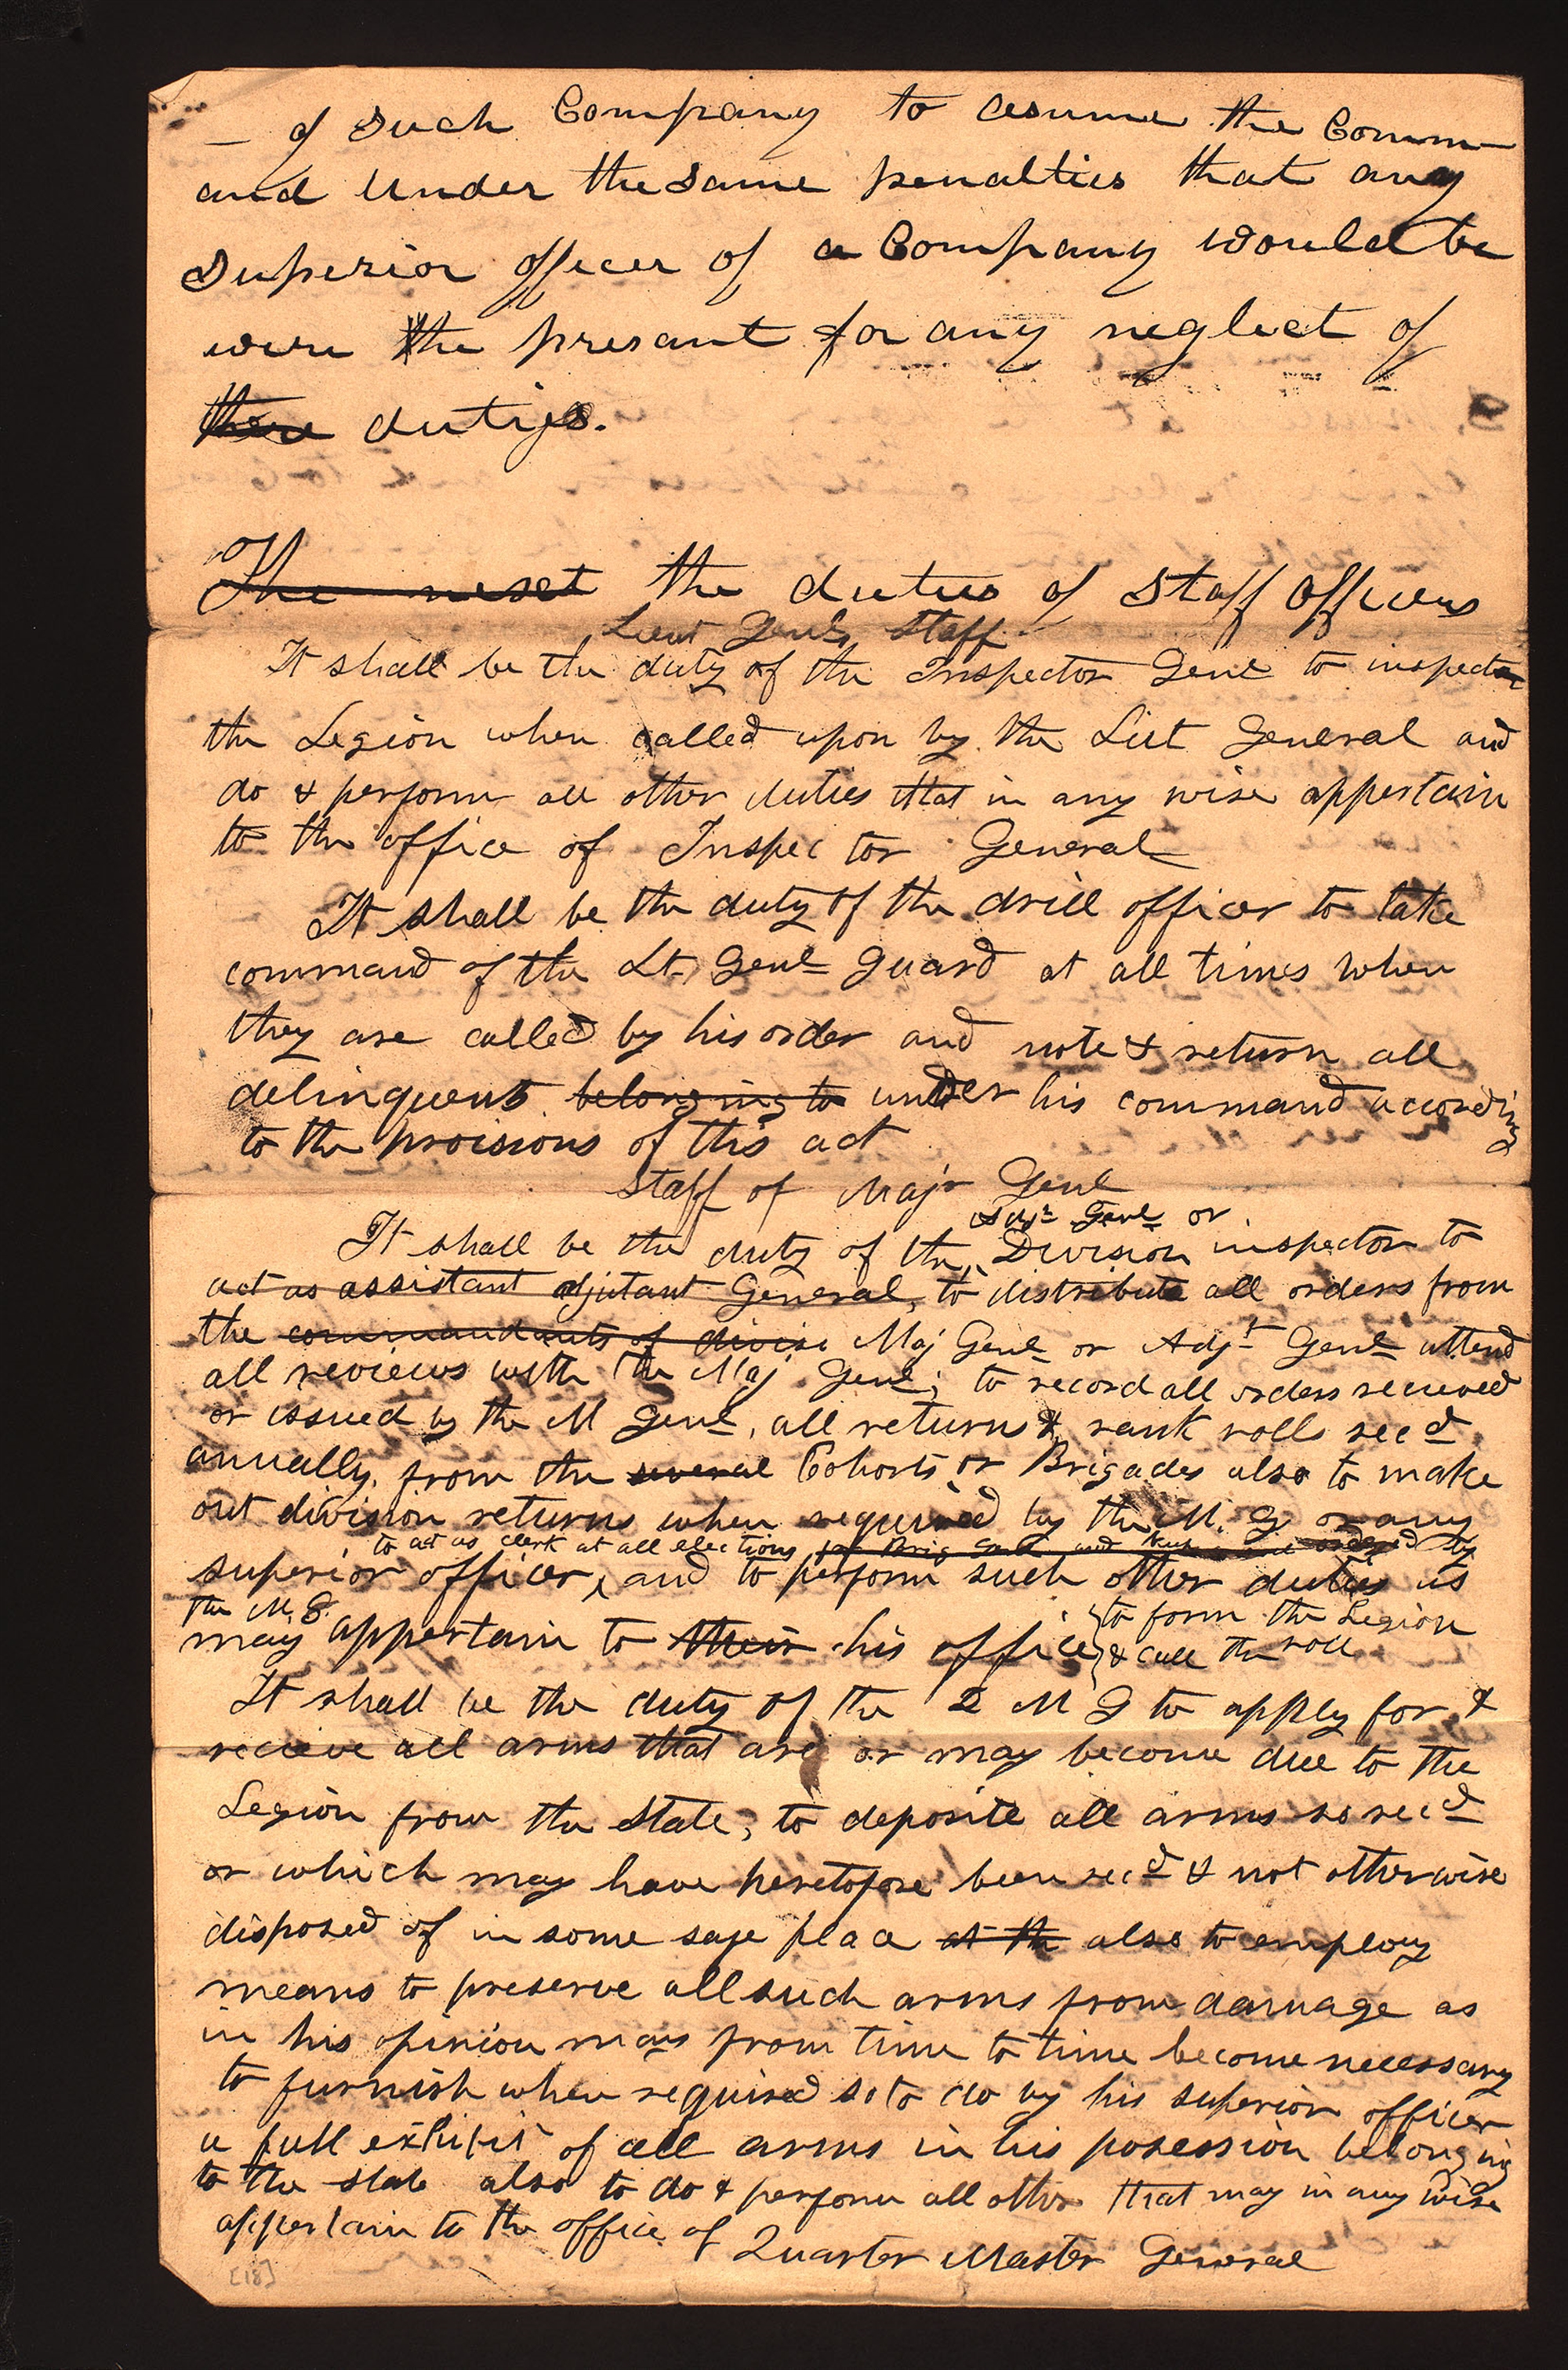 – of Such Company to assume the Comm
and Under the Same penalties that any
Superior officer of a Company would be
were the presant for any neglect of
there duties.
The nesct the duties of Staff Officers
Lieut Genls Staff
It shall be the duty of the Inspector Genl to inspect
the Legion when called upon by the Liut General and
do & perform all other duties that in any wise appertain
to the office of Inspector General
It shall be the duty of the drill officer to take
command of the Lt. Genl guard at all times when
they are called by his order and note & return all
delinquents belonging to under his command according
to the proisions of this act
Staff of Majr Genl
Adjt Genl or
It shall be the duty of the Division inspector to
act as assistant adjutant General, to distribute all orders from
the commandants of divisi Maj Genl or Adjt Genl attend
all reviews with the Maj Genl; to record all orders recieved
or issued by the M Genl, all returns & rank rolls recd
annually, from the several Cohorts or Brigades also to make
out division returns when required by the M. G. or any
to act as clerk at all elections for Brig Genl and ordered by
superior officer, and to perform such other duties as
the M. G.
may appertain to their his office to form the Legion
& call the roll
It shall be the duty of the Q M G to apply for &
recieve all arms that are or may become due to the
Legion from the State, to deposite all arms so recd
or which may have heretofore been recd & not otherwise
disposed of in some safe place at the also to employ
means to preserve all such arms from damage as
in his opinion may from time to time become necessary
to furnish when required so to do by his superior officer
a full exhibit of all arms in his posession belonging
to the state also to do & perform all other that may in any wise
appertain to the office of Quarter Master General
[18]